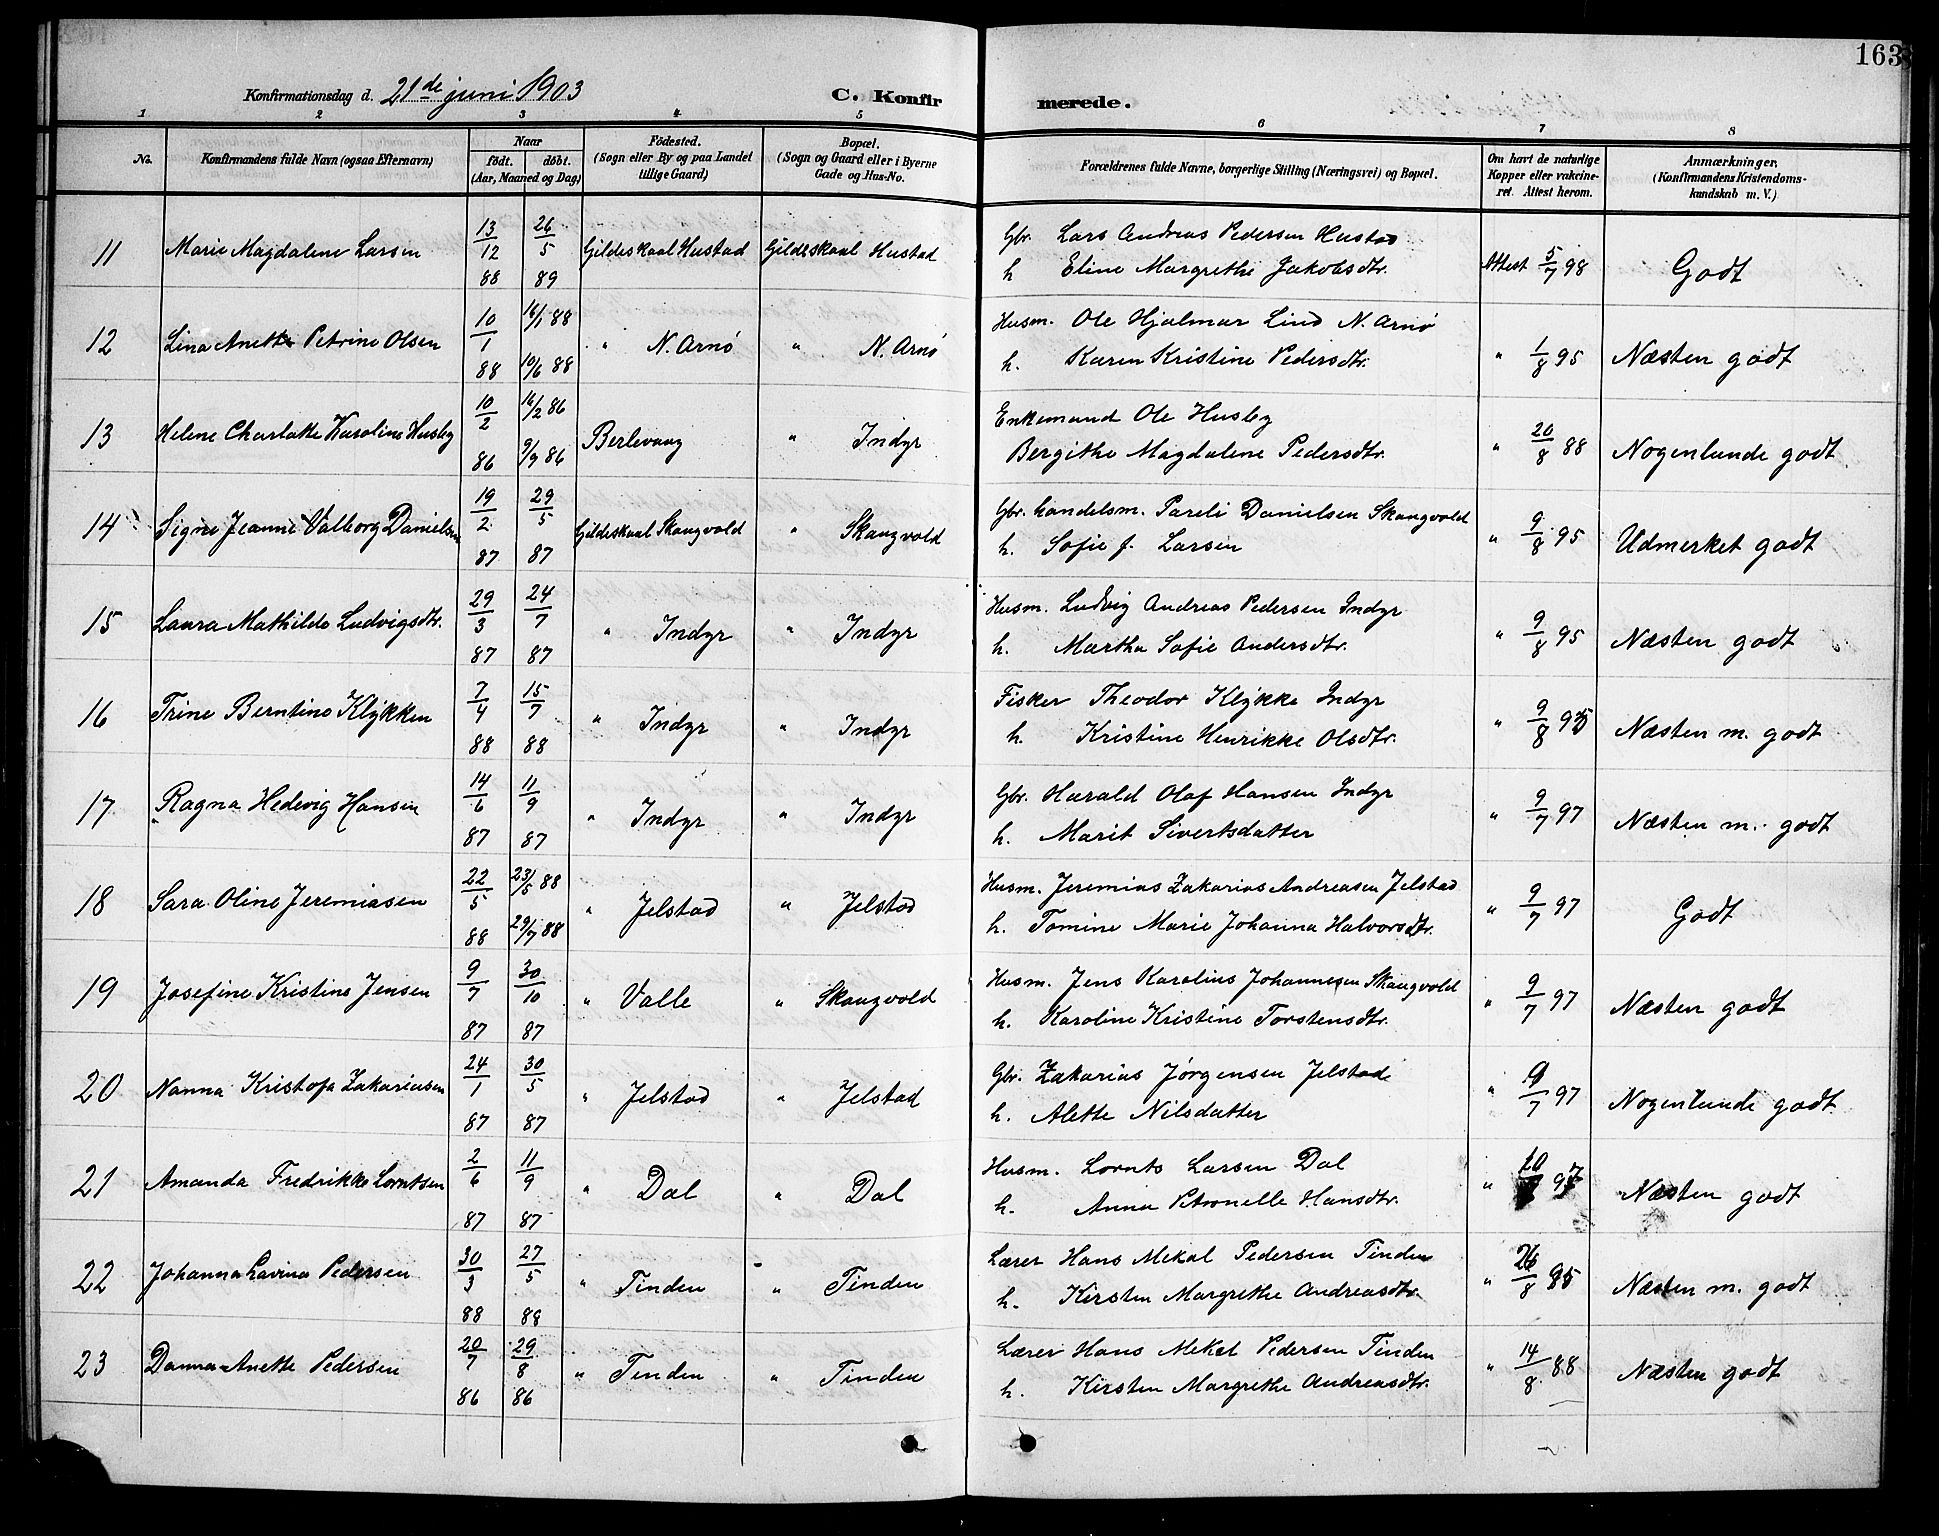 163
Konfirmationsdag d. 21de juni 1903
C. Konfirmerede.
1 2 3 4 5 6 7 8
No.
Konfirmandens fulde Navn (ogsaa Efternavn)
Naar
født. døbt.
(Aar, Maaned og Dag)
Fødested.
(Sogn eller By og paa Landet
tillige Gaard)
Bopæl.
(Sogn og Gaard eller i Byerne
Gade og Hus-No.
Forældrenes fulde Navne, borgerlige Stilling (Næringsvei) og Bopæl.
Om havt de naturlige
Kopper eller vakcine-
ret. Attest herom.
Anmærkninger,
(Konfirmandens Kristendoms-
kundskab m. V.)
11 Marie Magdalene Larsen 13/12 88 26/5 89 Gildeskaal Hustad Gildeskaal Hustad Gbr. Lars Andreas Pedersen Hustad
h Eline Margrethe Jakobsdtr. Attest 5/7 98 Godt
12 Lina Anette Petrine Olsen 10/1 88 16/1 88 10/6 88 " N. Arnø " N. Arnø Husm. Ole Hjalmar Lind N. Arnø
h. Karen Kristine Pedersdtr. " 1/8 95 Næsten godt
13 Helene Charlotte Karoline Husby 10/2 86 16/2 86 9/9 86 Berlevaag " Indyr Enkemand Ole Husby
Bergithe Magdalene Pedersdtr. " 20/8 88 Nogenlunde godt
14 Signe Jeanne Valborg Danielsen 19/2 87 29/5 87 Gildeskaal Skaugvold " Skaugvold Gbr. handelsm. Pareli Danielsen Skaugvold
h. Sofie f. Larsen " 9/8 95 Udmerket godt
15 Laura Mathilde Ludvigsdtr. 29/3 87 24/7 87 " Indyr " Indyr Husm. Ludvig Andreas Pedersen Indyr
h. Martha Sofie Andersdtr. " 9/8 95 Næsten godt
16 Trine Berntine Klykken 7/4 88 15/7 88 " Indyr " Indyr Fisker Theodor Klykke Indyr
h. Kristine Henrikke Olsdtr. " 9/8 95 Næsten m. godt
17 Ragna Hedevig Hansen 14/6 87 11/9 87 " Indyr " Indyr Gbr. Harald Olaf Hansen Indyr
h. Marit Sivertsdatter " 9/7 97 Næsten m. godt
18 Sara Oline Jeremiasen 22/5 88 23/5 88 29/7 88 " Jelstad " Jelstad Husm. Jeremias Zakarias Andreasen Jelstad
h. Tomine Marie Johanna Halvorsdtr. " 9/7 97 Godt
19 Josefine Kristine Jensen 9/7 87 30/10 87 " Valle " Skaugvold Husm. Jens Karolius Johannesen Skaugvold
h. Karoline Kristine Torstensdtr. " 9/7 97 Næsten godt
20 Nanna Kristofa Zakariasen 24/1 87 30/5 87 " Jelstad " Jelstad Gbr. Zakarias Jørgensen Jelstad
h. Alette Nilsdatter " 9/7 97 Nogenlunde godt
21 Amanda Fredrikke Lorntsen 2/6 87 11/9 87 " Dal " Dal Husm. Lornts Larsen Dal
h. Anna Petronelle Hansdtr. " Næsten godt
22 Johanna Lavina Pedersen 30/3 88 27/5 88 " Tinden " Tinden Lærer Hans Mekal Pedersen Tinden
h. Kirsten Margrethe Andreasdtr. " Næsten m. godt
23 Danna Anette Pedersen 20/7 86 29/8 86 " Tinden " Tinden Lærer Hans Mekal Pedersen Tinden
h. Kirsten Margrethe Andreasdtr. " 14/8 88 Næsten godt